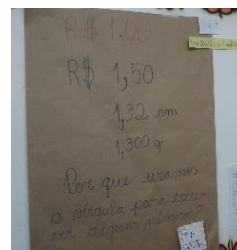 R$ 1,00
R$ 1,50
1,32 cm
1,300 g
Por que usamos
a vírgula para escre-
ver alguns números?